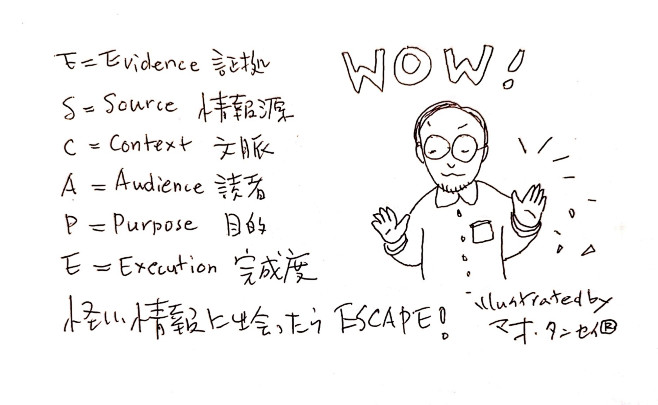 E = Evidence 証拠
S = Source 情報源
C = Context 文脈
A = Audience 読者
P = Purpose 目的
E = Execution 完成度
怪しい情報に出会ったら ESCAPE!
WOW!
illustrated by
マオ・タンセイ®